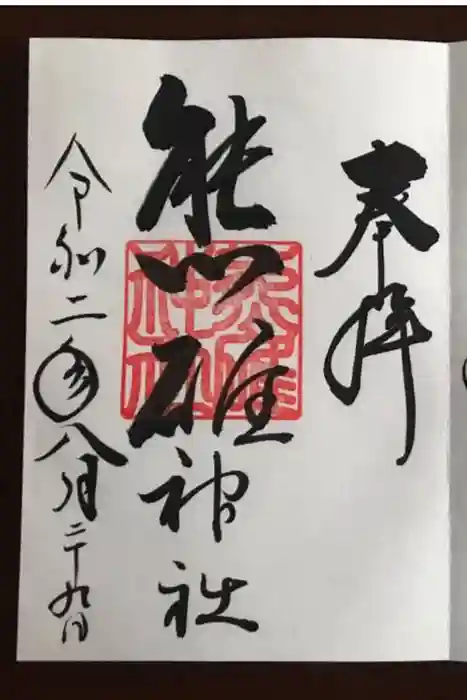 奉拝
熊碓神社
令和二年八月二十九日